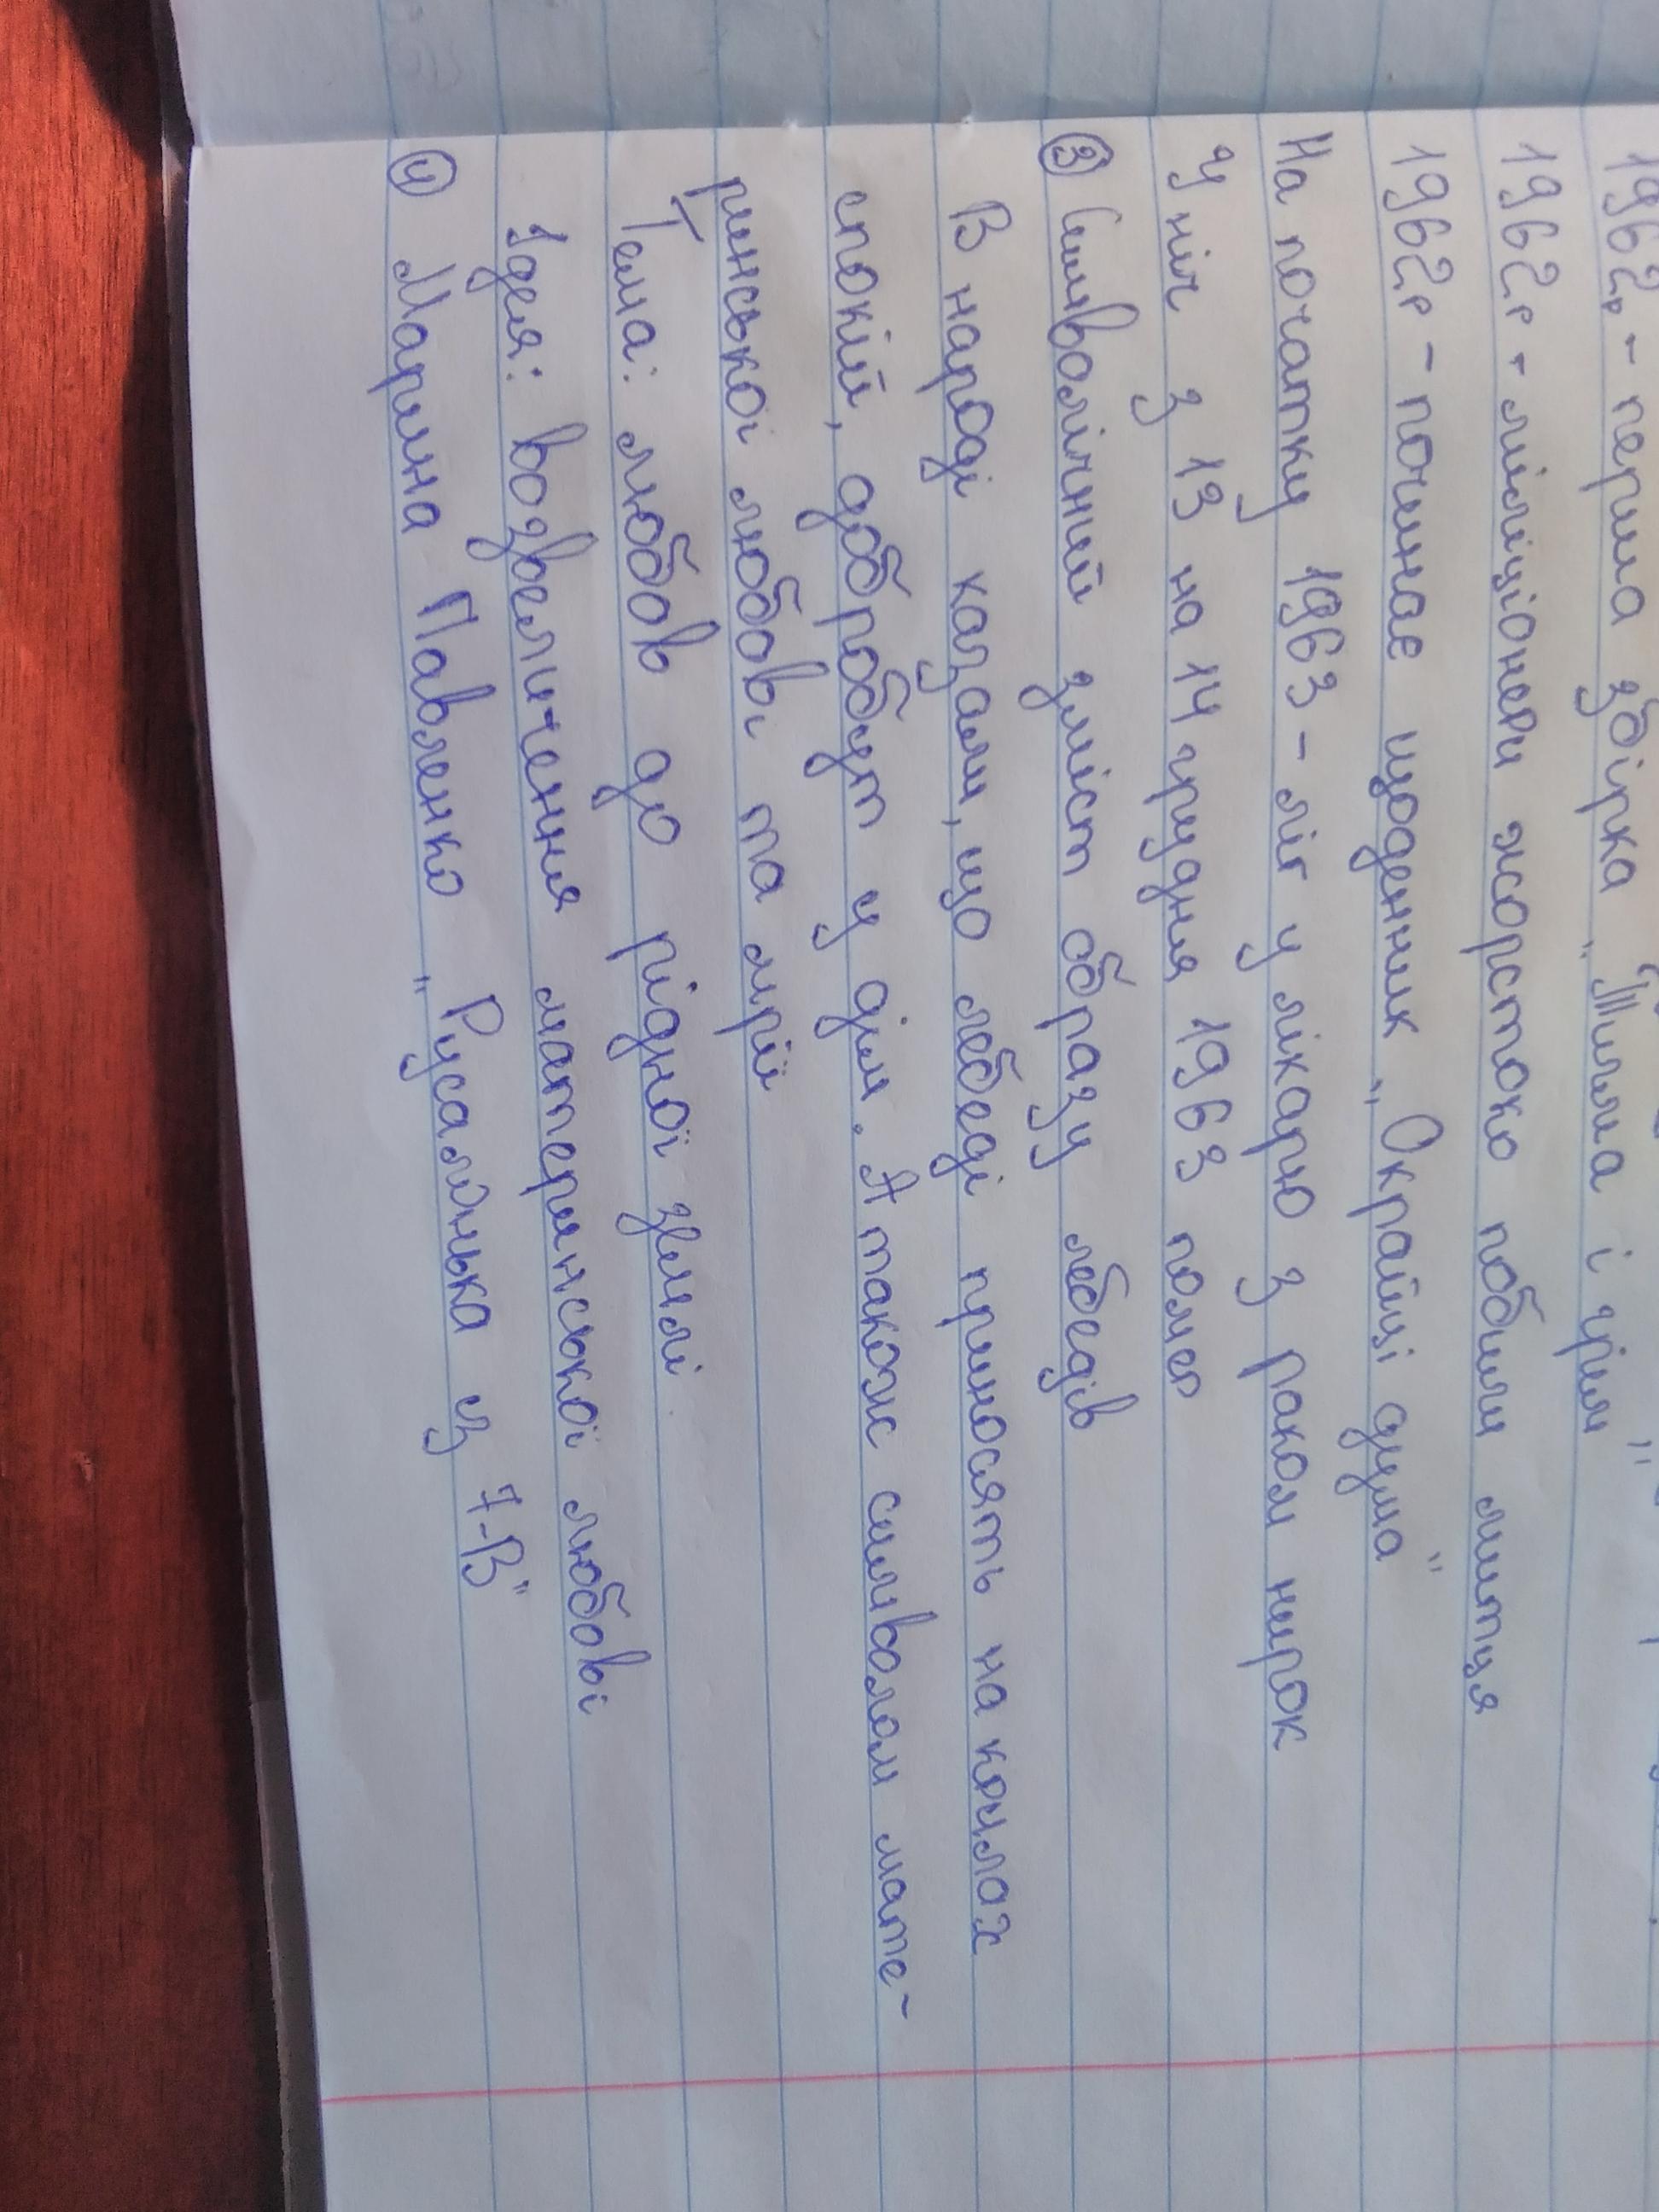 1962р - перша збірка „Тиша і грім"
1962р - міліціонери жорстоко побили митця
1962р - починає щоденник „Окрайці думо"
На початку 1963 - ліг у лікарю з раком нирок
У ніч з 13 на 14 грудня 1963 помер
③ Символічний зміст образу лебедів
В народі казали, що лебеді приносять на крилах
спокій, добробут у дім. А також символом мате-
ринської любові та мрії
Тема: любов до рідної землі
Ідея: возвеличення материнської любові
④ Марина Павленко „Русалонька із 7-В"